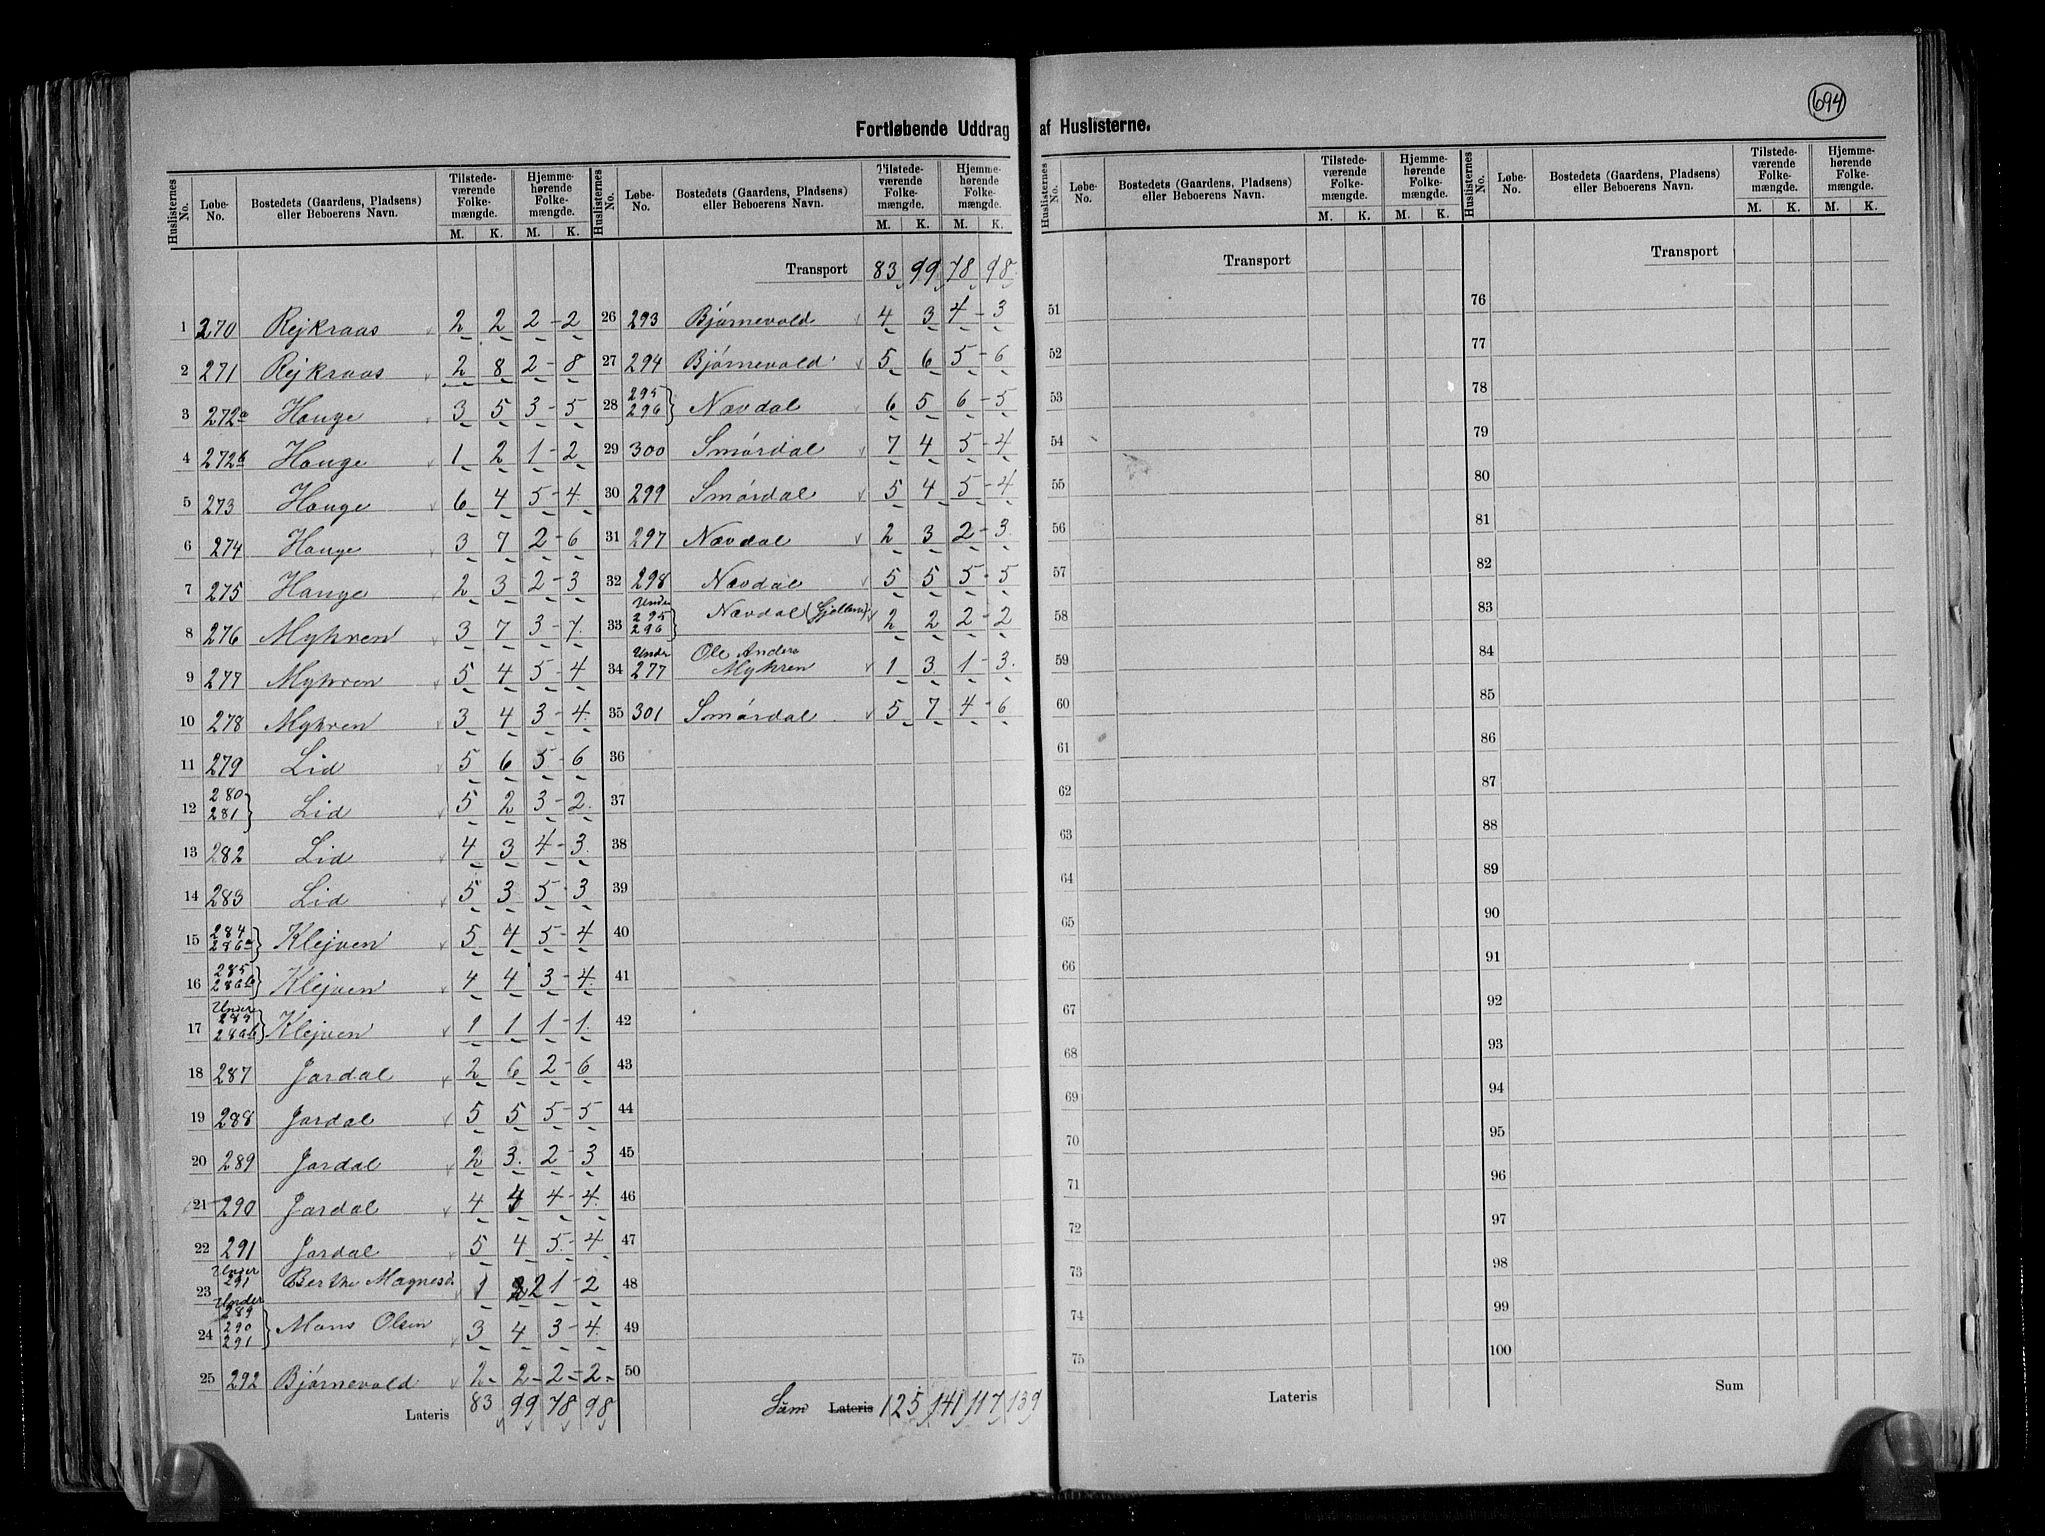 694
Fortløbende Uddrag af Huslisterne.
Huslisternes No. Løbe-No. Bostedets (Gaardens, Pladsens) eller Beboerens Navn. Tilstedeværende Folkemængde. M. K. Hjemmehørende Folkemængde. M. K.
1 270 Rejkraas 2 2 2 - 2
2 271 Rejkraas 2 8 2 - 8
3 272a Hauge 3 5 3 - 5
4 272b Hauge 1 2 1 - 2
5 273 Hauge 6 4 5 - 4
6 274 Hauge 3 7 2 - 6
7 275 Hauge 2 3 2 - 3
8 276 Myhren 3 7 3 - 7
9 277 Myhren 5 4 5 - 4
10 278 Myhren 3 4 3 - 4
11 279 Lid 5 6 5 - 6
12 280 281 } Lid 5 2 3 - 2
13 282 Lid 4 3 4 - 3
14 283 Lid 5 3 5 - 3
15 284 286a } Klejven 5 4 5 - 4
16 285 286b } Klejven 4 4 3 - 4
17 Under 285 286b } Klejven 1 1 1 - 1
18 287 Jordal 2 6 2 - 6
19 288 Jordal 5 5 5 - 5
20 289 Jordal 2 3 2 - 3
21 290 Jordal 4 4 4 - 4
22 291 Jordal 5 4 5 - 4
23 Under 291 Berthe Magnesd. 1 2 1 - 2
24 Under 289 290 291 } Mons Olsen 3 4 3 - 4
25 292 Bjørnevold 2 - 2 - 2 - 2 -
Lateris 83 99 78 98
Huslisternes No. Løbe-No. Bostedets (Gaardens, Pladsens) eller Beboerens Navn. Tilstedeværende Folkemængde. M. K. Hjemmehørende Folkemængde. M. K.
Transport 83 99 78 98
26 293 Bjørnevold 4 3 4 - 3
27 294 Bjørnevold 5 6 5 - 6
28 295 296 } Nævdal 6 5 6 - 5
29 300 Smørdal 7 4 5 - 4
30 299 Smørdal 5 4 5 - 4
31 297 Nævdal 2 3 2 - 3
32 298 Nævdal 5 5 5 - 5
33 Under 295 296 } Nævdal 2 2 2 - 2
34 Under 277 Ole Anders Myhren 1 3 1 - 3
35 301 Smørdal 5 7 4 - 6
36
37
38
39
40
41
42
43
44
45
46
47
48
49
50
Sum Lateris 125 141 117 139
Huslisternes No. Løbe-No. Bostedets (Gaardens, Pladsens) eller Beboerens Navn. Tilstedeværende Folkemængde. M. K. Hjemmehørende Folkemængde. M. K.
Transport
51
52
53
54
55
56
57
58
59
60
61
62
63
64
65
66
67
68
69
70
71
72
73
74
75
Lateris
Huslisternes No. Løbe-No. Bostedets (Gaardens, Pladsens) eller Beboerens Navn. Tilstedeværende Folkemængde. M. K. Hjemmehørende Folkemængde. M. K.
Transport
76
77
78
79
80
81
82
83
84
85
86
87
88
89
90
91
92
93
94
95
96
97
98
99
100
Sum